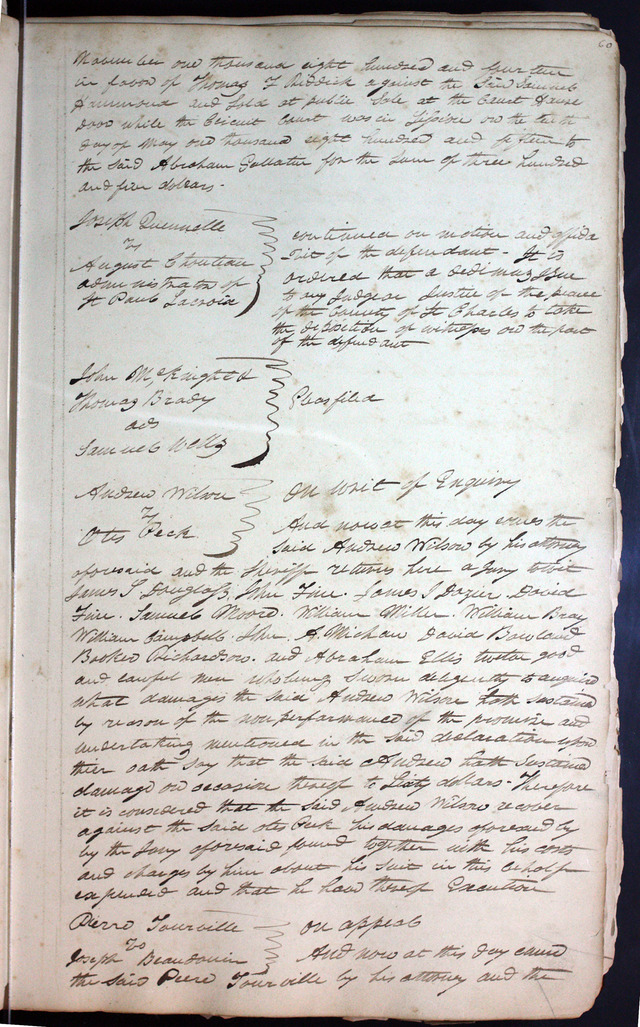 60
November one thousand eight hundred and fourteen
in favor of Thomas F Riddick against the said Samuel
Hammond and sold at public Sale at the Court House
Door while the Circuit Court was in Session on the tenth
day of May one thousand eight hundred and fifteen to
the said Abraham Gallatin for the sum of three hundred
and five dollars.
Joseph
vs
August Chouteau
administrator of
St Paul Lacroix
continued on motion and affida
vit of the defendant. It is
ordered that a dedimus issue
to any Judge or Justice of the peace
of the County of St Charles to take
the deposition of witnesses on the part
of the defendant
John McKnight &
Thomas Brady
ads
Samuel Wells
Pleas filed
Andrew Wilson
vs
Otis Peck
On writ of Enquiry
And now at this day comes the
said Andrew Wilson by his attorney
aforesaid and the Sheriff returns here a Jury to wit
James S Douglass, John Fine. James S Dozier David
Fine. Samuel Moore. William Miller. William Bray
William Campbell. John A. Michau David Bowland
Booker Richardson. and Abraham Ellis twelve good
and lawful men who being sworn diligently to enquire
what damages the said Andrew Wilson hath sustained
by reason of the nonperformance of the promise and
undertaking mentioned in the said declaration upon
thier oath say that the said Andrew hath sustained
damage on occasion thereof to Sixty dollars. Therefore
it is considered that the said Andrew Wilson recover
against the said otis Peck his damages aforesaid by
by the Jury aforesaid found together with his costs
and charges by him about his suit in this behalf
expended and that he have thereof Execution
Pierre Tourville
vs
Joseph Beaudouin
on appeal
And now at this day came
the said Piere Tourville by his attorney and the